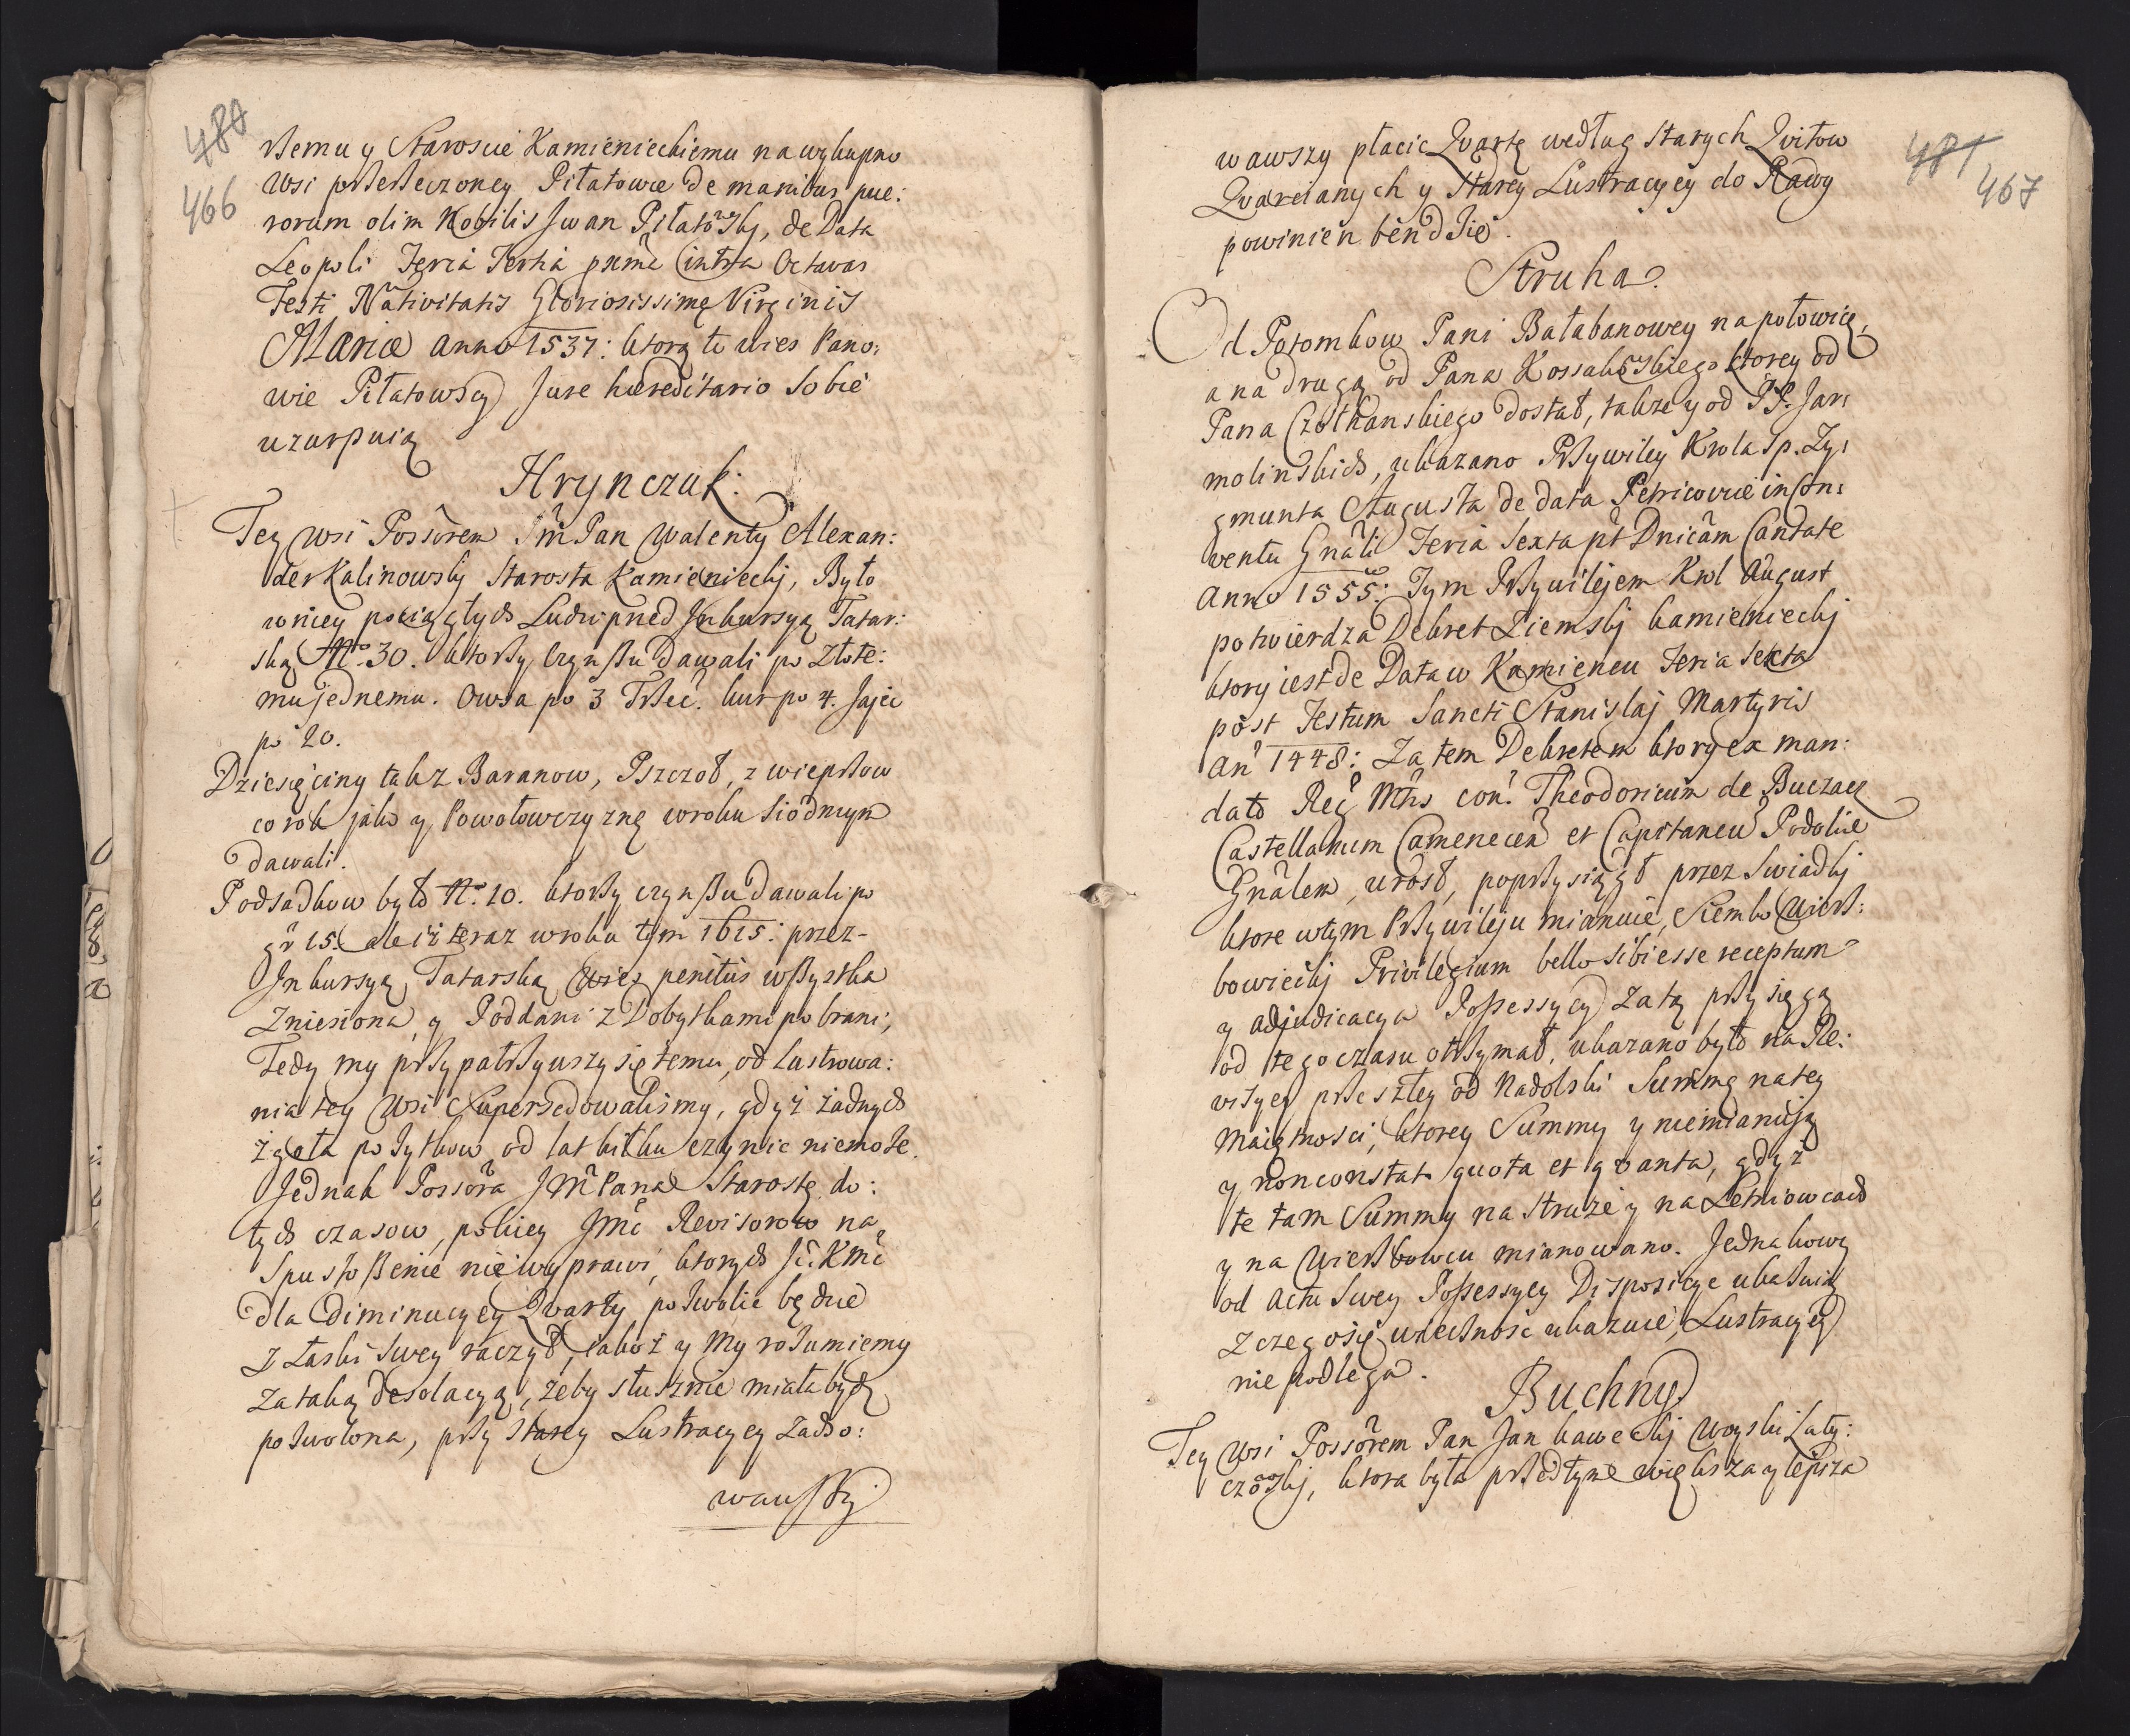 480
466
rßemu y Staroscie Kamienieckiemu na wykupno
wsi przerzeczoney Piłatowce de manibus pue:
rorum olim Nobilis Jwan Piłatowskj, de Data
Leopoli Feria Tertia prima intra Octavas
Festi Nativitatis Gloriosissimę Virginis
Mariæ Anno 1537: ktorą te wies Pano:
wie Piłatowscy Jure hæreditario sobie
uzurpuią
Hrynczuk.
Tey wsi Possorem Jm̃ Pan Walenty Alexan:
der Kalinowskj Starosta Kamienieckj, Było
w niey pociągłych Ludzi przed Jnkursyą Tatar:
ską No 30. ktorzy czynßu dawali po złote:
mu jednemu. Owsa po 3 Trzeć. kur po 4. Jajec
po 20.
Dziesięciny takz Baranow, Pszczoł, z wieprzow
co rok jako y Powołowczyznę w roku siodmym
dawali.
Podsadkow było No 10. ktorzy czynßu dawali po
gr 15. ale iż teraz w roku tym 1615: przez
Jnkursyą Tatarską wies penitus wßystka
zniesiona y Poddani z Dobytkami pobrani,
Tedy my przypatrzywszy się temu, od Lustrowa:
nia tey wsi Supersedowalismy, gdyż żadnych
zgoła pożytkow od lat kilku czynic niemoże.
Jednak Possora Jm̃ Pana Starostę do:
tych czasow, pokiey Jmc Revisorow na
Spustoßenie nie wyprawi, ktorych J. Kmc
dla Diminucyey Qvarty pozwolic będzie
z Łaski swey raczył, jakoż y my rozumiemy
za taką Desolacyą, żeby słusznie miała bydz
pozwolona, przy starey Lustracyey zacho:
wawßy
481
467
wawszy płacic Qvartę według starych Qvitow
Qvarcianych y starey Lustracyey do Rawy
powinien bendzie.
Struha.
Od Potomkow Pani Bałabanowey na połowicę,
a na drugą od Pana Kossakowskiego ktorey od
Pana Czołhanskiego dostał, takze y od PP. Jar:
molinskich, ukazano Przywiley Krola Sp. Zy:
gmunta Augusta de data Petricovie in Con:
ventu Gnãli Feria Sexta pt Dnicam Cantate
Anno 1555: Tym Przywilejem Krol August
potwierdza Dekret Ziemskj kamienieckj
ktory iest de Data w Kamiencu Feria Sexta
post Festum Sancti Stanislaj Martyris
An 1448: Za tem Dekretem ktory ex man:
dato Reg Mtis con. Theodoricum de Buczacz
Castellanum Camenecen et Capitaneu Podoliæ
Gnãlem, urosł, poprzysiągł przez swiadkj
ktore w tym Przywileju mianuie, Siemko Wierz:
bowieckj Privilegium bello sibi esse receptum
y adjudicacya Poßessyey za tą przysięgą
od tego czasu otrzymał, ukazano było na Re:
wizyey przeszłey od Nadolski Summę na tey
maiętnosci, ktorey Summy y niemianują
y non constat quota et qvanta, gdyż
te tam Summy na Struże y na Letniowcach
y na Wierzbowcu mianowano. Jednakowy
od Actu swey Poßessyey Disposicye ukazuią
z czego się wiecznosc ukazuie, Lustracyey
nie podlega.
Buchny
Tey wsi Possorem Pan Jan kaweckj Woyski Laty:
czowskj, ktora była przedtym większa y lepsza